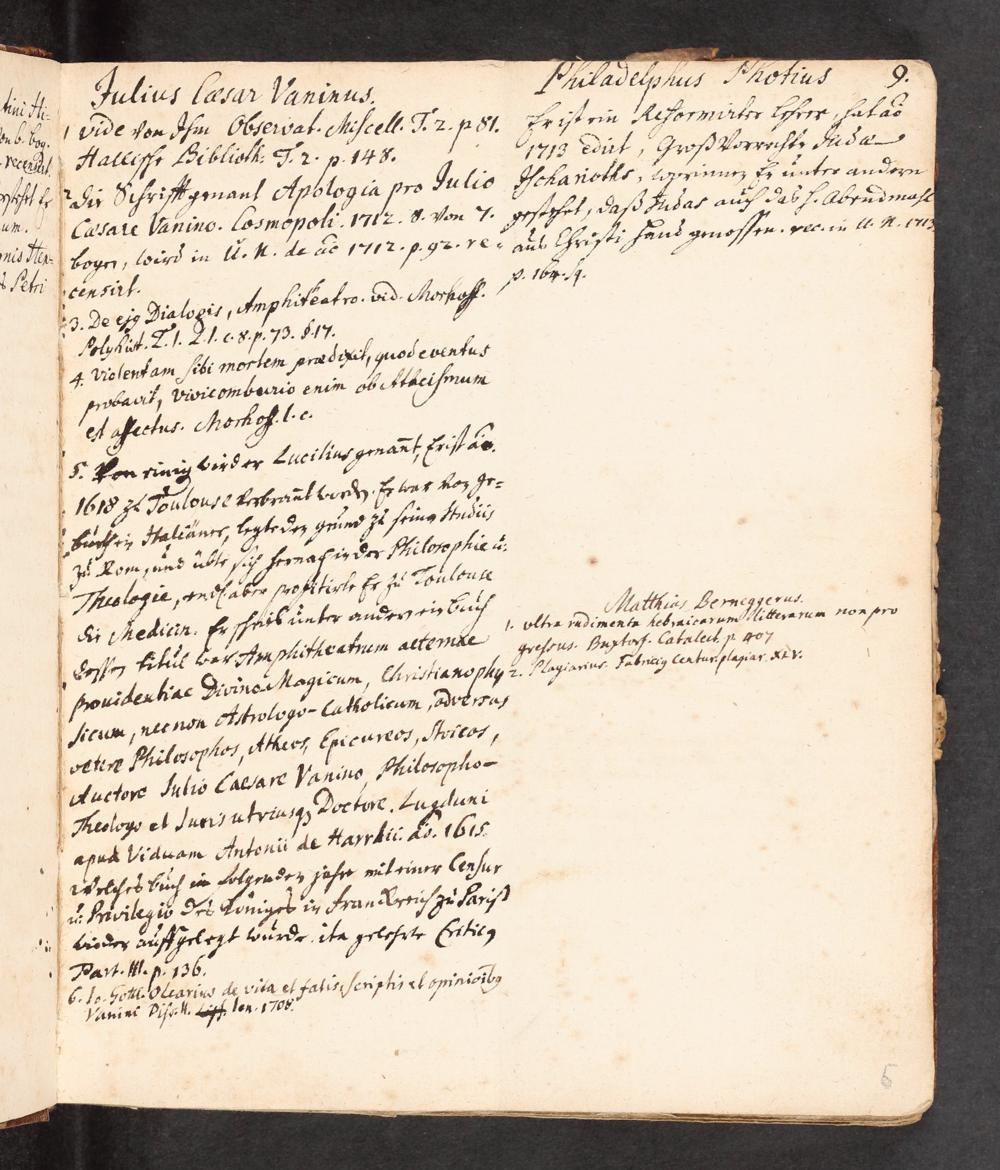 Julius Cæsar Vaninus.
1 vide von Ihm Observat. Miscell. T. 2. p 81.
Hallische Biblioth. T. 2. p. 148.
2 die Schrifft genant Apologia pro Julio
Cæsare Vanino. Cosmopoli. 1712. 8. von 7.
bogen, wird in U. N. de aõ 1712. p. 92. re-
censirt.
3. De ejꝫ Dialogis, Amphiteatro. vid. Morhoff.
Polyhist. T. 1. L. 1. c. 8. p. 73. §. 17.
4. violentam sibi mortem prædixit, quod eventus
probavit, vivicomburio enim ob Atheismum
est affectus. Morhoff. l. c.
5. Von einig wird er Lucilius genañt, Er ist ão.
1618 zu Toulouse verbrant worden. Er war von ge-
burth ein Italiäner, legte den grund zu seinen Studiis
zu Rom, und übte sich hernach in der Philosophie u:
Theologie, endl. aber profitirte Er zu Toulouse
die Medicin. Er schrieb unter andern ein buch
dessen titul war Amphitheatrum aeternae
prouidentiae Divino-Magicum, Christianophy
sicum, nec non Astrologo-Catholicum, adversus
vetere Philosophos, Atheos, Epicureos, Stoicos,
Auctore Julio Caesare Vanino, Philosopho-
Theologo et Juris utriusqꝫ Doctore. Lugduni
apud Viduam Antonii de Harrkii. ão. 1615.
Welches buch im folgenden jahre mit einer Censur
u: Privilegio des Königes in Franckreich zu Pariß
wieder auffgelegt wurde. ita gelehrte Critic
Part. III. p. 136.
6. Jo. Gottl. Olearius de vita et fatis, scriptis et opinioibꝫ
Vanini Diss. II. Jen. 1708.
Philadelphus Photius 9.
Er ist ein Reformirter Lehrer, hat aõ
1713 edirt, Groß Vorrechte Juda
Ischarioths, worinnen Er unter andern
gestehet, daß Judas auch das H. Abendmahl
aus Christi Hand genossen. rec. in U. N. 1713
p. 164. f.
Matthias Berneggerus.
1. ultra rudimenta hebraicarum litterarum non pro
gressus. Buxtorf. Catalect. p. 407
2. Plagiarius. Fabricig Centur. plagiar. XLV.
5